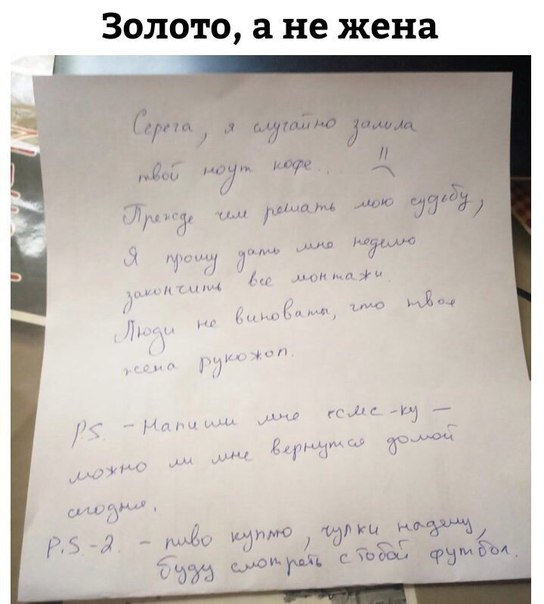 Золото, а не жена
Серега, я случайно залила
твой ноут кофе..
Прежде чем решать мою судьбу,
Я прошу дать мне неделю
закончить все монтажи.
Люди не виноваты, что твоя
жена рукожоп.
P.S. - Напиши мне смс-ку -
можно ли мне вернутся домой
сегодня.
P.S-2. - пиво куплю, чулки надену,
буду смотреть с тобой футбол.